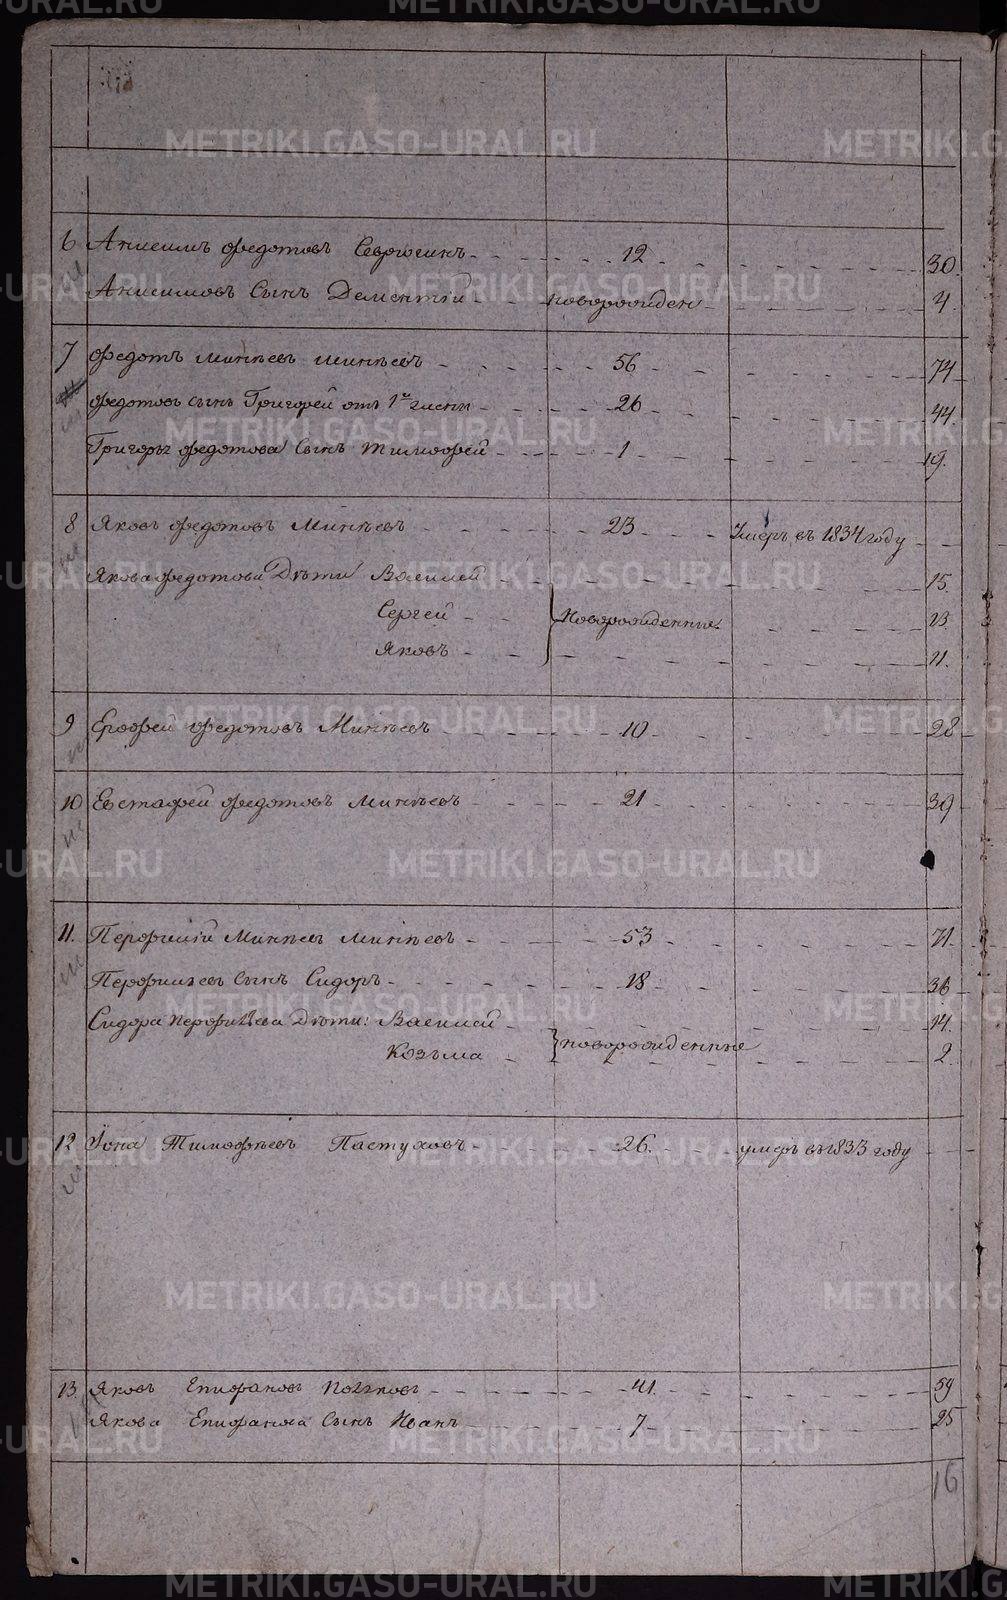 6 Анисимъ Федотовъ 12 30.
Анисимовъ Сынъ Дементій новорожден 4.
7 Федотъ Минѣевъ Минѣевъ 56 74
Федотовъ сынъ Григорей отъ 1й жены 26 44.
Григорья Федотова Сынъ Тимофей 1 19.
8 Яковъ Федотовъ Минѣевъ 23 Умеръ въ 1834 году
Якова Федотова Дѣти Василей 15.
Сергей новорожденные 13.
Яковъ 11.
9 Ерофей Федотовъ Минѣевъ 10 28
10 Евстафей Федотовъ Минѣевъ 21 39
11. Перфилій Минѣевъ Минѣевъ 53 71.
Перфильевъ Сынъ Сидоръ 18 36
Сидора Перфильева Дѣти: Василей 14.
Козьма новорожденные 2.
12 Іона Тимофѣевъ Пастуховъ 26. умеръ въ 1833 году
13. Яковъ Епифановъ 41. 59
Якова Епифанова Сынъ Иванъ 7 25
16
METRIKI.GASO-URAL.RU